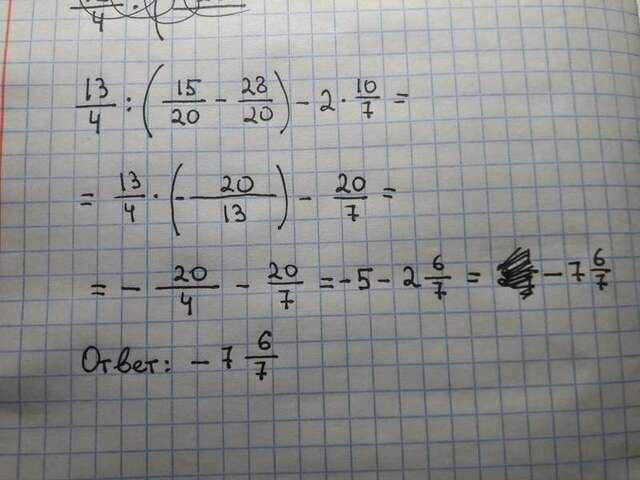 13/4 : (15/20 - 28/20) - 2 · 10/7 =
= 13/4 · (- 20/13) - 20/7 =
= - 20/4 - 20/7 = -5 - 2 6/7 = - 7 6/7
Ответ: - 7 6/7